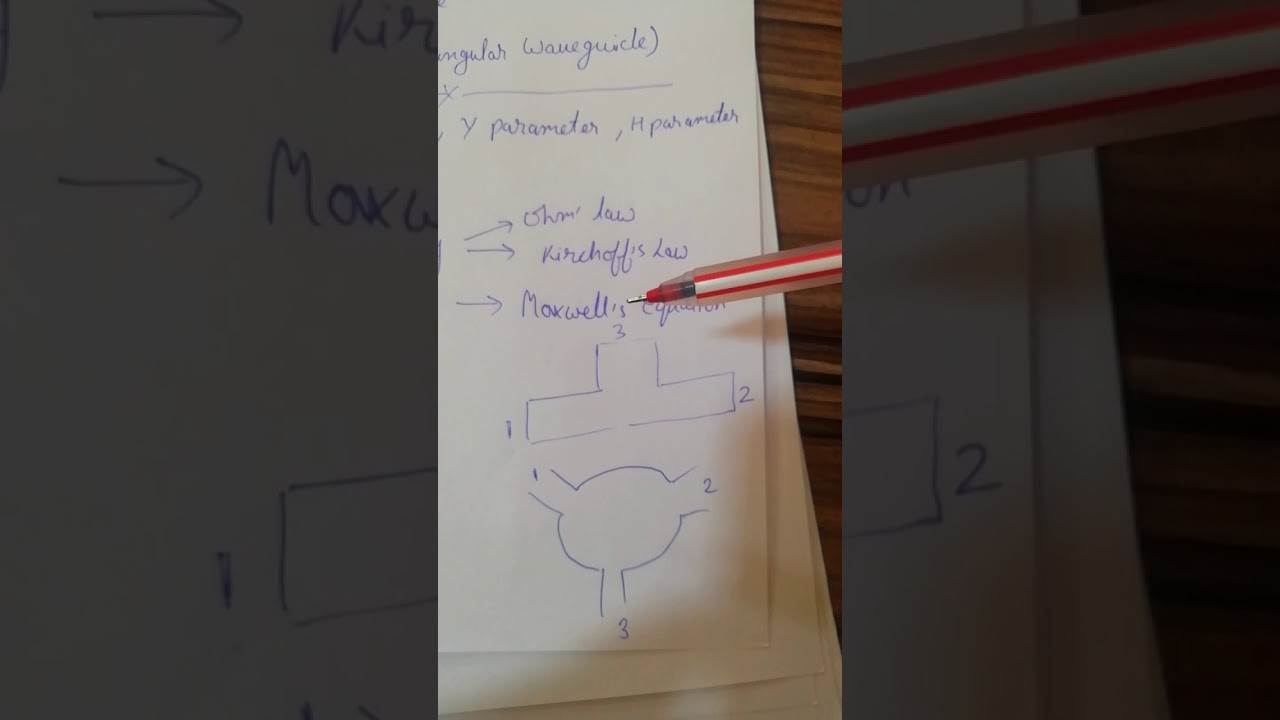 angular waveguide)
, Y parameter , H parameter
Ohm' law
Kirchoff's Law
Maxwell's Equation
3
1
2
1
2
3